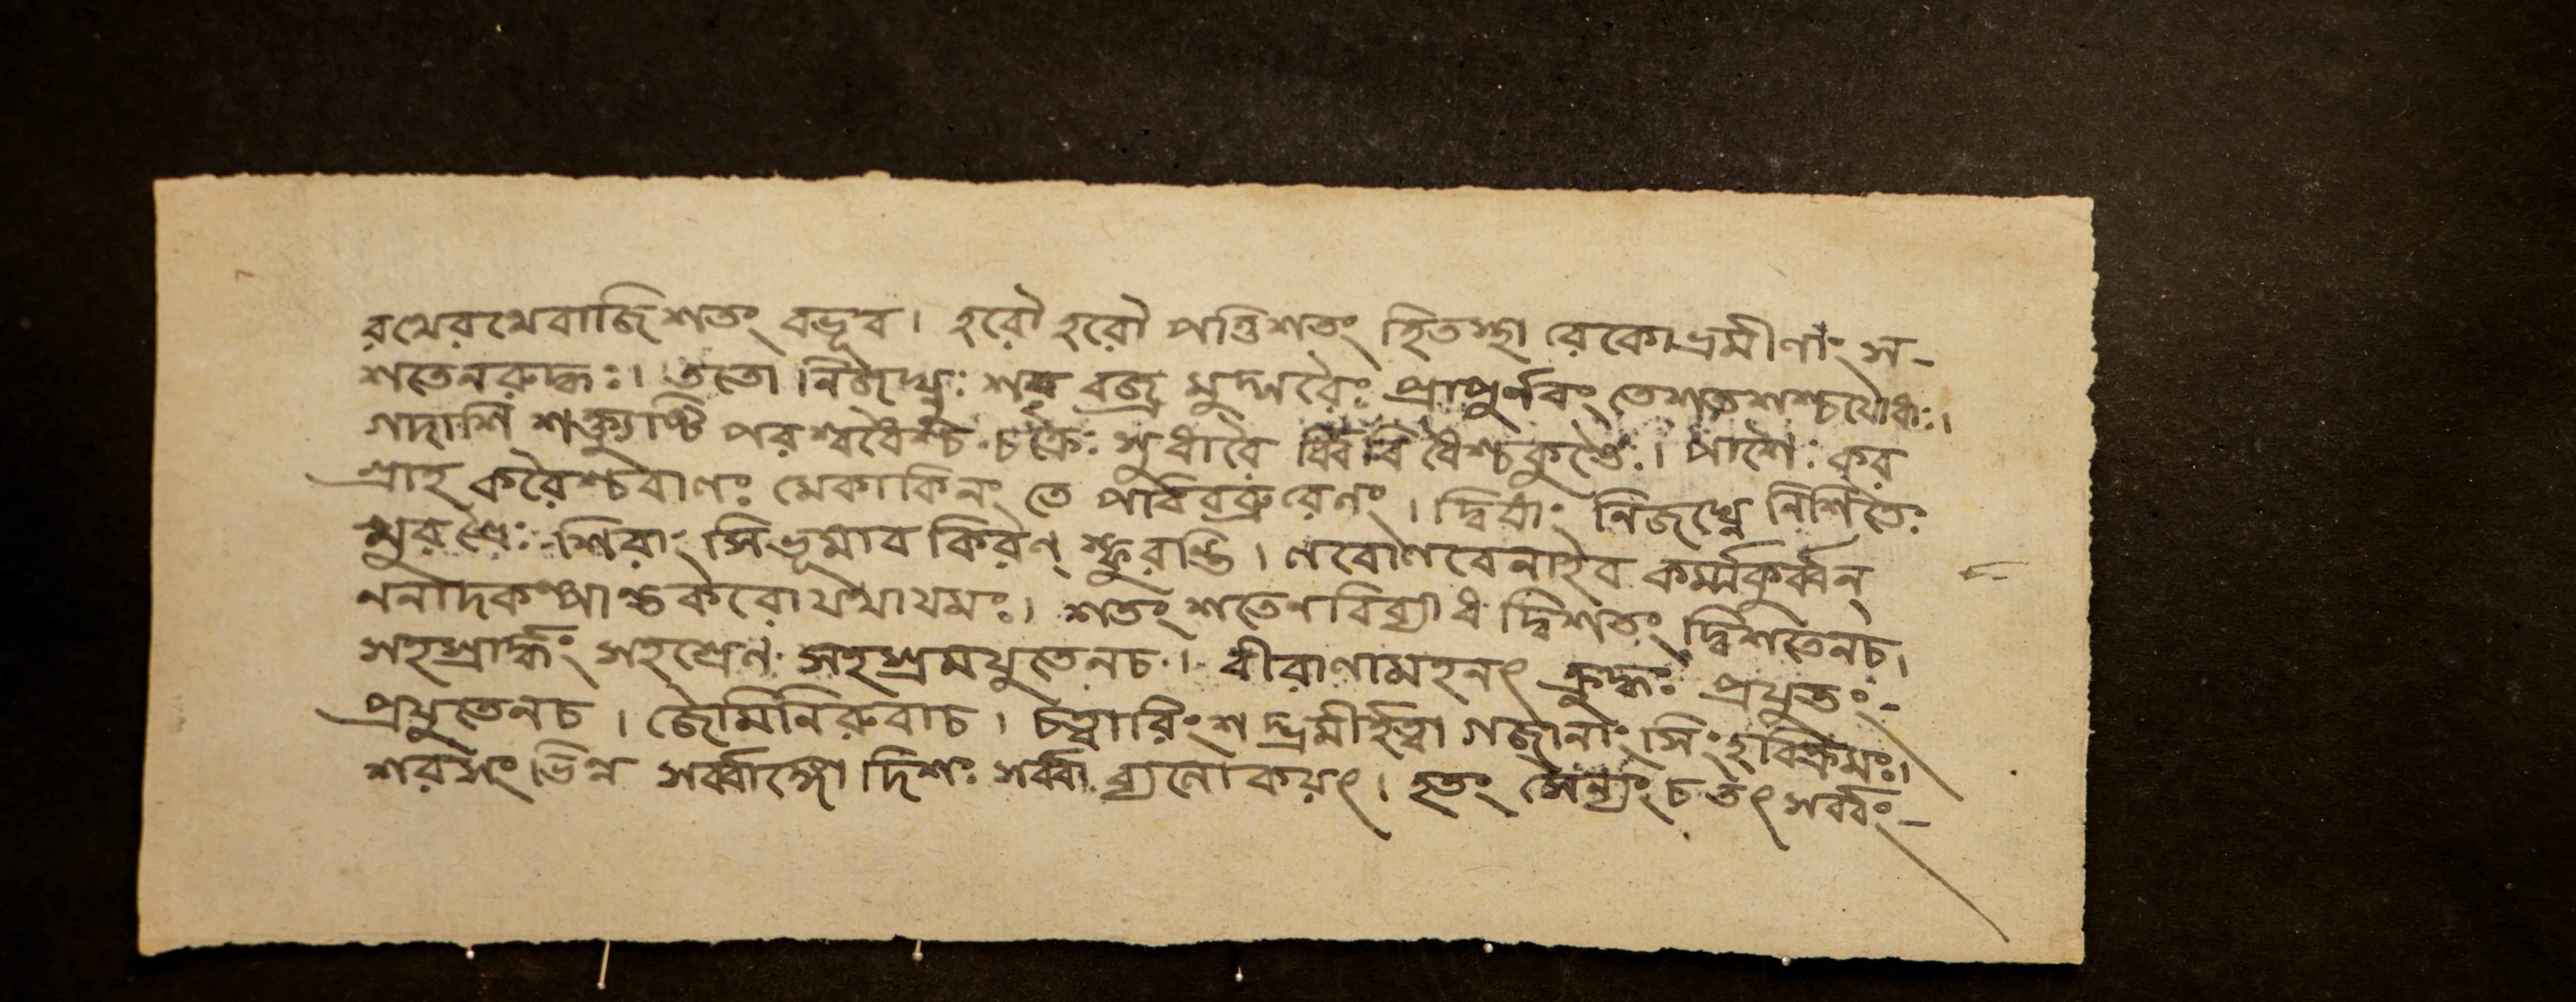 রথেরথেবাজিশতং বভূব। হরৌ হরৌ পত্তিশতং হিতস্থা রেকো ভ্রমীণাং স-
শতেনরুদ্ধঃ। ততো নিজঘ্নুঃ শর বজ্র মুদ্গরৈঃ প্রাপুর্ণবং তেশতশশ্চযোধাঃ।
গদাশি শক্ত্যাষ্টি পরশ্বধৈশ্চ চক্রৈঃ সুধারৈ র্বিবিধৈশ্চকুণ্ডৈঃ। পাশৈঃ কর
প্রাহ করৈশ্চবাণঃ মেকাকিনং তে পরিবব্রুরেণং। দ্বিষাং নিজঘ্নে নিশিতৈঃ
ক্ষুরপ্রৈঃ শিরাংসিভূমাব কিরণ্ স্ফুরন্তি। ণবোণবেনাইব কর্ম্মকুর্ব্বন্
ননাদকল্পান্তকরোযথাযমঃ। শতং শতেনবিব্যাধ দ্বিশতং দ্বিশতেনচ।
সহস্রার্দ্ধং সহস্রেণ সহস্রমযুতেনচ। বীরাণামহনৎ ক্রুদ্ধঃ প্রযুতং-
প্রযুতেনচ। জৈমিনিরুবাচ। চত্বারিংশ দ্ভ্রমীর্হত্বা গজানাং সিংহবিক্রমঃ।
শরসংভিন্ন সর্ব্বাঙ্গো দিশঃ সর্ব্বা ব্যলোকয়ৎ। হতং সৈন্যং চ তৎ সর্ব্বং-